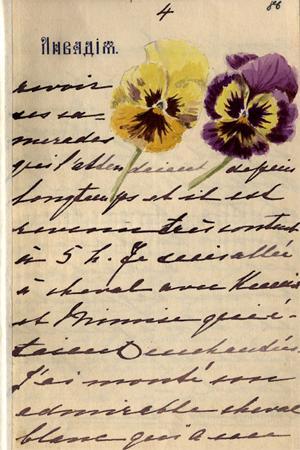 4
86
Ливадія.
revoir
ses ca-
merades
qui l'attendaient depuis
longtemps et il est
revenu très content
à 5 h. Je suis allée
à cheval avec
et Minnie qui é-
taient enchantées.
J'ai monté son
admirable cheval
blanc qui a une